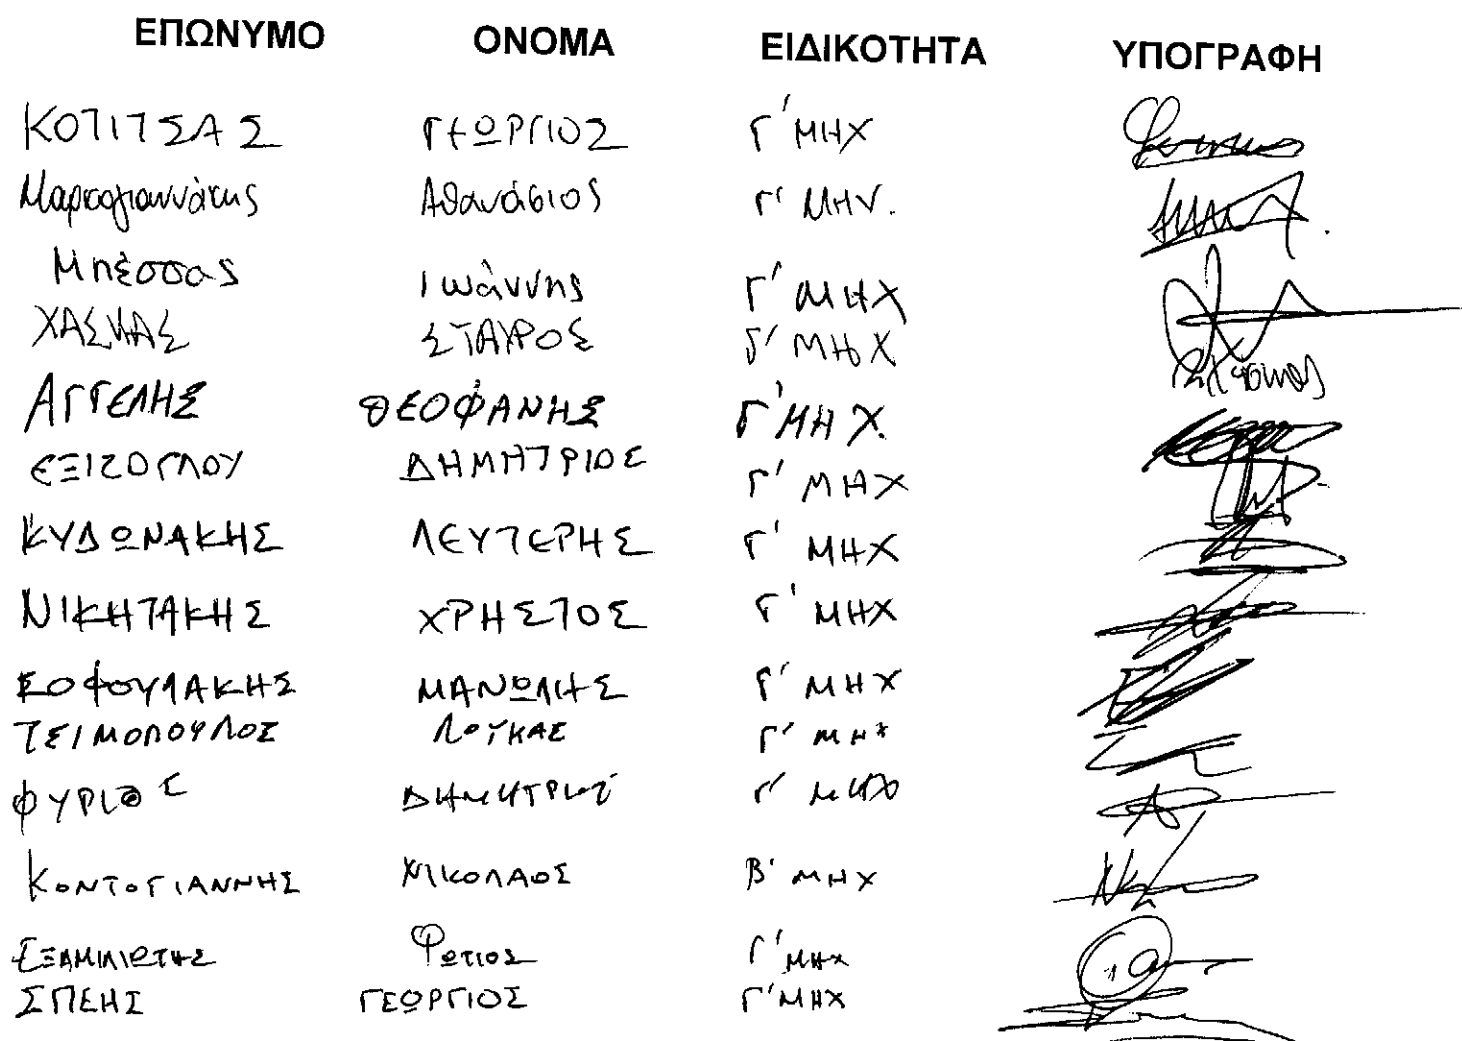 ΕΠΩΝΥΜΟ ΟΝΟΜΑ ΕΙΔΙΚΟΤΗΤΑ ΥΠΟΓΡΑΦΗ
ΚΟΤΙΤΣΑΣ ΓΕΩΡΓΙΟΣ Γ' ΜΗΧ
Μαρκογιαννάκης Αθανάσιος Γ' ΜΗΧ.
Μπέσσας Ιωάννης Γ' ΜΗΧ
ΧΑΣΚΑΣ ΣΤΑΥΡΟΣ Γ' ΜΗΧ
ΑΓΓΕΛΗΣ ΘΕΟΦΑΝΗΣ Γ' ΜΗΧ.
ΕΞΙΖΟΓΛΟΥ ΔΗΜΗΤΡΙΟΣ Γ' ΜΗΧ
ΚΥΔΩΝΑΚΗΣ ΛΕΥΤΕΡΗΣ Γ' ΜΗΧ
ΝΙΚΗΤΑΚΗΣ ΧΡΗΣΤΟΣ Γ' ΜΗΧ
ΣΟΦΟΥΛΑΚΗΣ ΜΑΝΩΛΗΣ Γ' ΜΗΧ
ΤΣΙΜΟΠΟΥΛΟΣ ΛΟΥΚΑΣ Γ' ΜΗΧ
ΦΥΡΙΟΣ ΔΗΜΗΤΡΙΟΣ Γ' ΜΗΧ
ΚΟΝΤΟΓΙΑΝΝΗΣ ΝΙΚΟΛΑΟΣ Β' ΜΗΧ
ΕΞΑΜΙΛΙΩΤΗΣ ΦΩΤΙΟΣ Γ' ΜΗΧ
ΣΠΕΗΣ ΓΕΩΡΓΙΟΣ Γ' ΜΗΧ